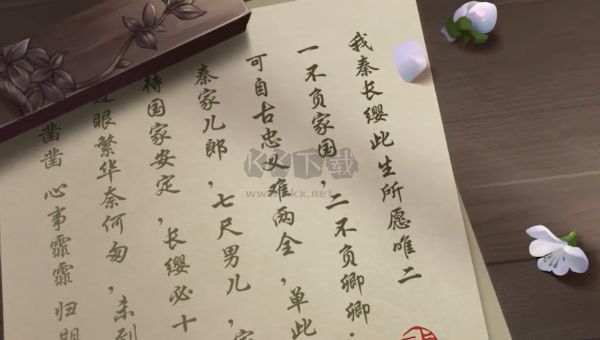 我秦长缨此生所愿唯二
一不负家国，二不负卿卿，
可自古忠义难两全，单此
秦家儿郎，七尺男儿，
待国家安定，长缨必十
眼繁华奈何匆，未到
凿凿 心事霏霏 归期
KK下载
www.kkx.net